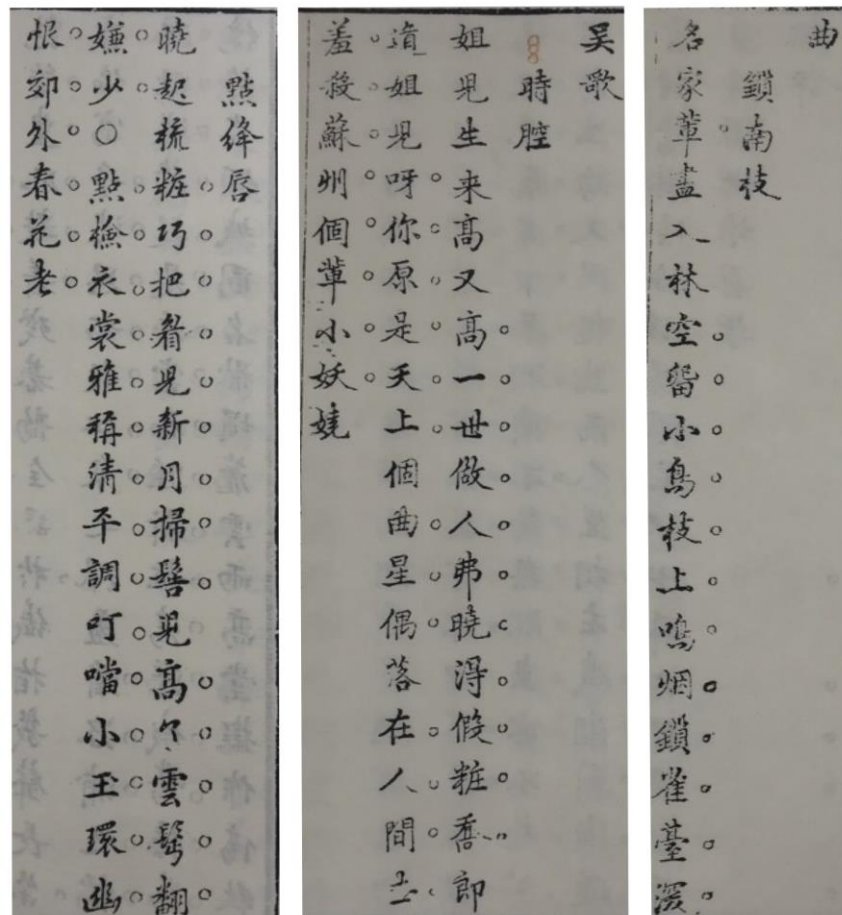 曲
鎖南枝
名家輩盡入林空畱小鳥枝上鳴烟鎖雀臺深
吴歌
時腔
姐兒生来高又高一世做人弗曉淂假粧喬即
道姐兒呀你原是天上個曲星偶落在人間
羞殺蘇州個輩小妖嬈
點絳唇
曉起梳粧巧把眉兒新月掃髻兒高〻雲髩翻
嫌少○點檢衣裳雅稱清平調叮噹小玉環幽
恨郊外春花老